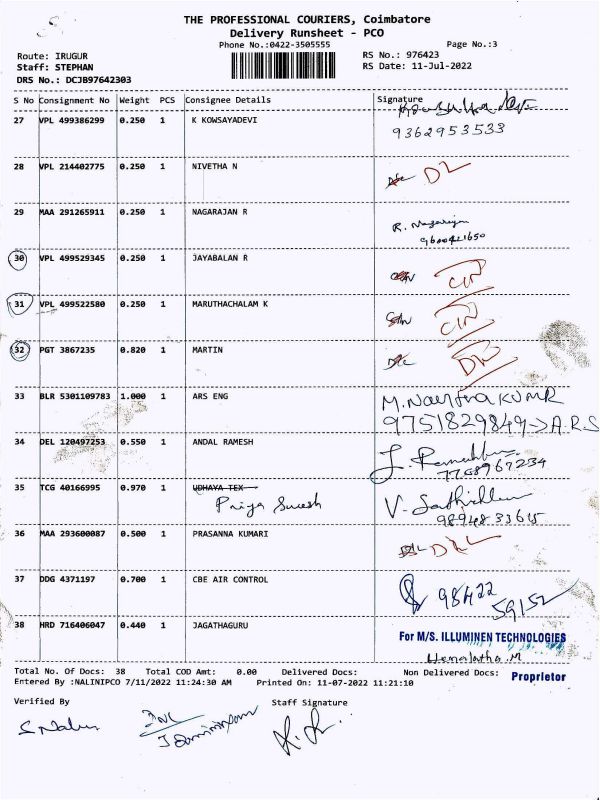 THE PROFESSIONAL COURIERS, Coimbatore
Delivery Runsheet - PCO
Phone No.:0422-3505555
Page No.:3
Route: IRUGUR
RS No.: 976423
Staff: STEPHAN
RS Date: 11-Jul-2022
DRS No.: DCJB97642303
S No Consignment No Weight PCS Consignee Details Signature
27 VPL 499386299 0.250 1 K KOWSAYADEVI
9362953533
28 VPL 214402775 0.250 1 NIVETHA N DL
29 MAA 291265911 0.250 1 NAGARAJAN R R. Nagarajan
9600421650
30 VPL 499529345 0.250 1 JAYABALAN R CIN
31 VPL 499522580 0.250 1 MARUTHACHALAM K CIN
32 PGT 3867235 0.820 1 MARTIN
33 BLR 5301109783 1.000 1 ARS ENG
9751829849->A.R.S
34 DEL 120497253 0.550 1 ANDAL RAMESH
7708967234
35 TCG 40166995 0.970 1 UDHAYA TEX
Priya Suresh
9894833615
36 MAA 293600087 0.500 1 PRASANNA KUMARI
37 DDG 4371197 0.700 1 CBE AIR CONTROL 98422
59152
38 HRD 716406047 0.440 1 JAGATHAGURU For M/S. ILLUMINEN TECHNOLOGIES
Hemalatha.M
Total No. Of Docs: 38 Total COD Amt: 0.00 Delivered Docs: Non Delivered Docs: Proprietor
Entered By :NALINIPCO 7/11/2022 11:24:30 AM Printed On: 11-07-2022 11:21:10
Verified By Staff Signature